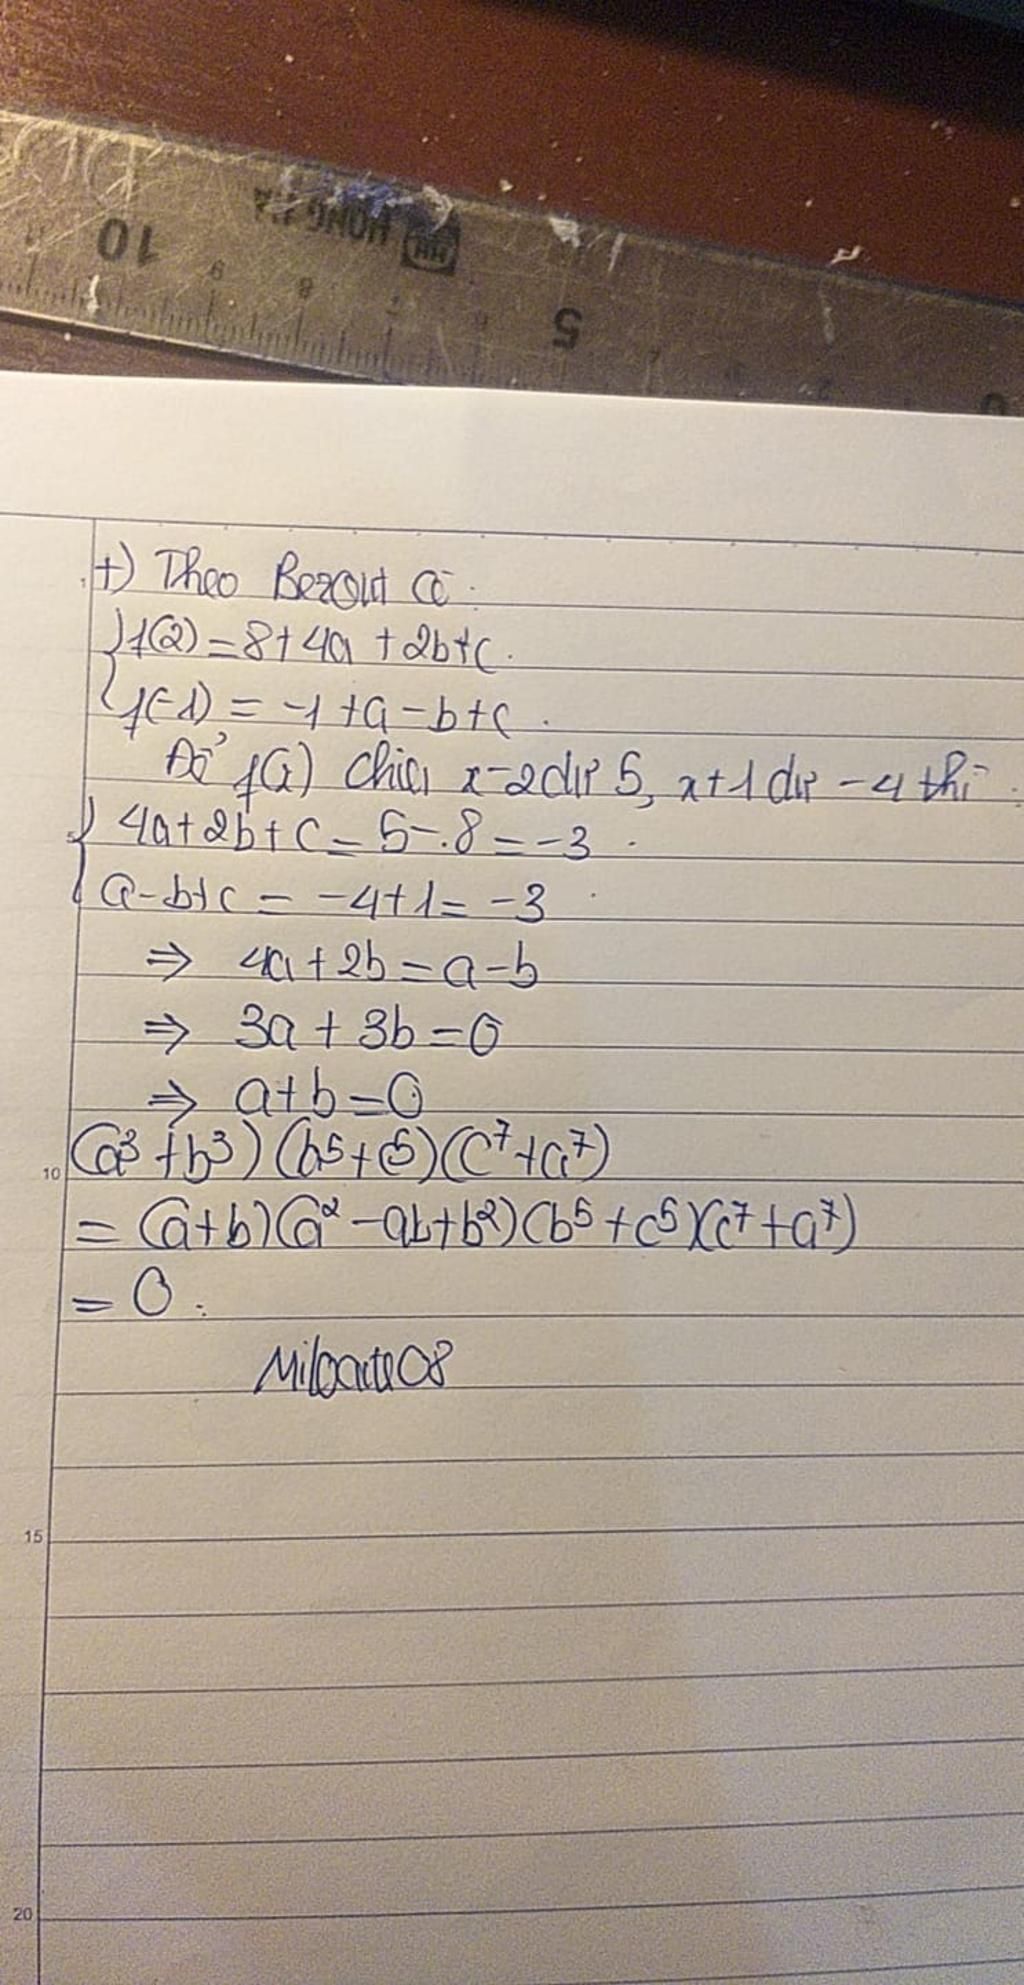 10 9 8 7 5 0
HONG HA
+) Theo Bezout có:
f(2) = 8 + 4a + 2b + c.
f(-1) = -1 + a - b + c.
Để f(x) chia x-2 dư 5, x+1 dư -4 thì:
5
4a + 2b + c = 5 - 8 = -3.
a - b + c = -4 + 1 = -3.
⇒ 4a + 2b = a - b
⇒ 3a + 3b = 0
⇒ a + b = 0
10
(a³ + b³)(b⁵ + c⁵)(c⁷ + a⁷)
= (a + b)(a² - ab + b²)(b⁵ + c⁵)(c⁷ + a⁷)
= 0.
15
20